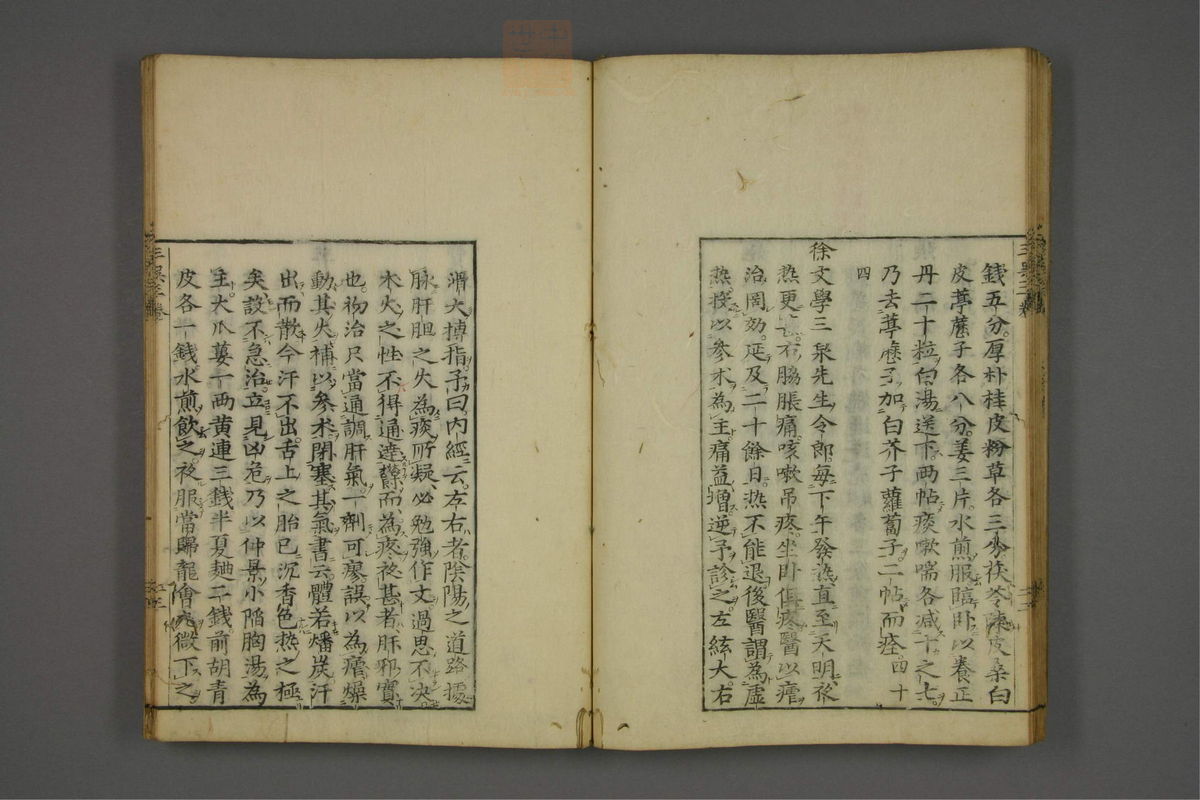 錢五分厚朴桂皮粉草各三分茯苓陳皮桑白
皮葶藶子各八分姜三片水煎服臨卧以養正
丹二十粒白湯送下两帖痰嗽喘各減十之七
乃去葶藶子加白芥子蘿蔔子二帖而痊四十
四
徐文學三泉先生令郎每下午發热直至天明夜
热更右脇脹痛咳嗽吊疼坐卧俱疼醫以瘧
治罔効延及二十餘日热不能退後醫謂為虛
热投以参术為主痛益增逆予診之左絃大右
滑大搏指予曰内經云左右者陰陽之道路據
脉肝胆之火為痰所凝必勉強作文過思不决
木火之性不得通達欝而為疼夜甚者肝邪實
也初治只當通調肝氣一劑可瘳誤以為瘧燥
動其火補以参术閉塞其氣書云體若燔炭汗
出而散今汗不出舌上之胎已沉香色热之極
矣設不急治立見凶危乃以仲景小陷胸湯為
主大瓜蔞一两黄連三錢半夏麯二錢前胡青
皮各一錢水煎飲之夜服當歸龍薈丸微下之